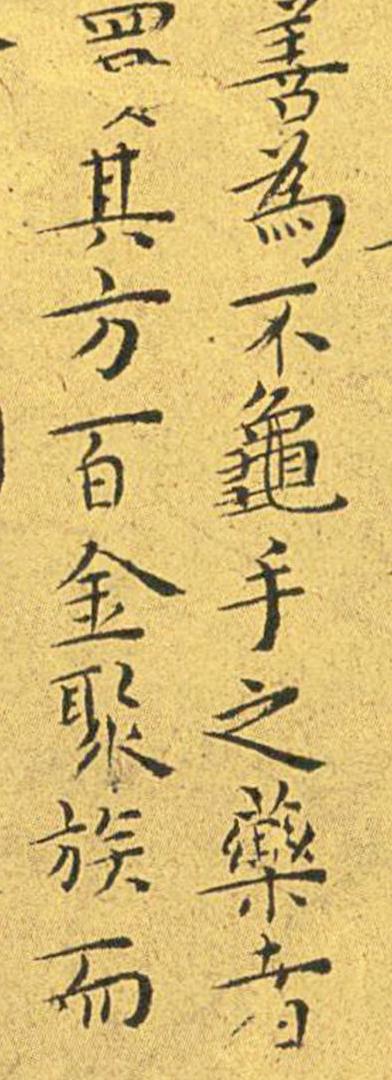 善為不龜手之藥者
其方百金聚族而